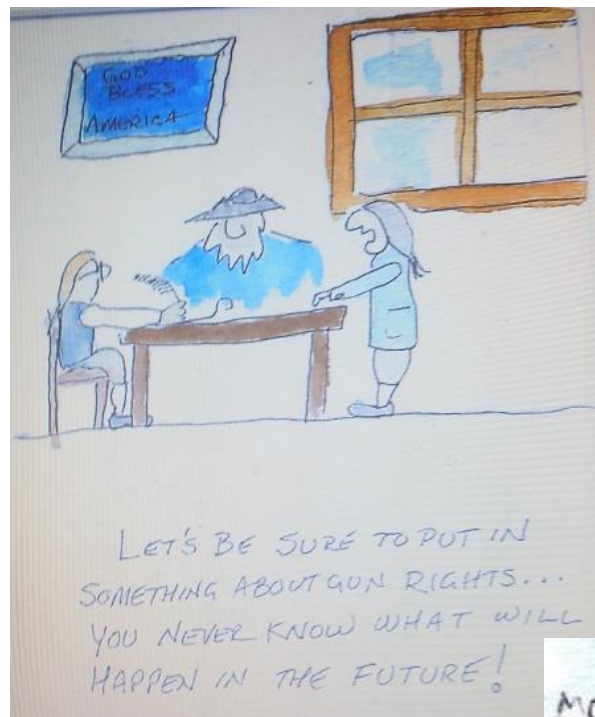 GOD
BLESS
AMERICA
LET'S BE SURE TO PUT IN
SOMETHING ABOUT GUN RIGHTS...
YOU NEVER KNOW WHAT WILL
HAPPEN IN THE FUTURE!